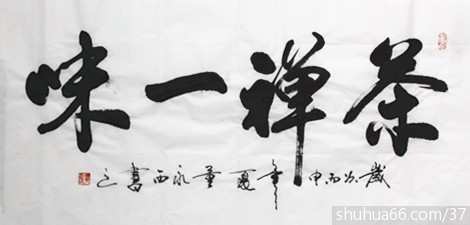 茶禅一味
歲次丙申年夏董永西書
shuhua66.com/37